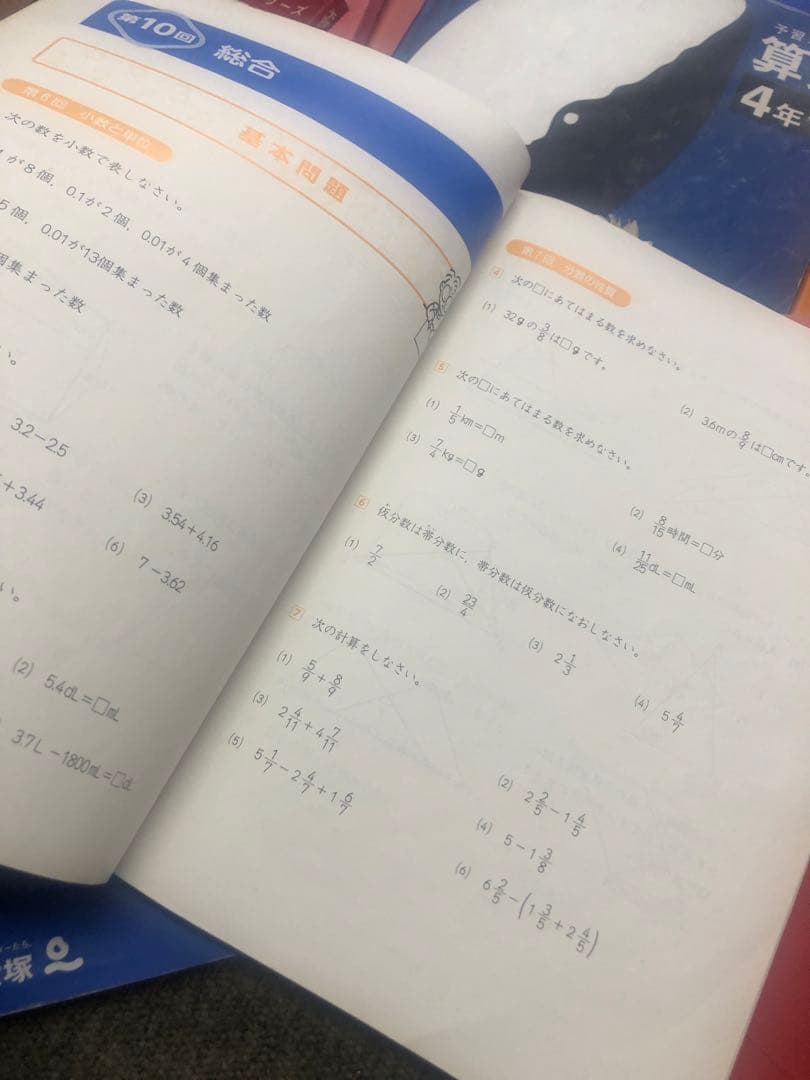 第10回 総合
基本問題
第6回 小数と単位
次の数を小数で表しなさい。
が8個, 0.1が2個, 0.01が4個集まった数
5個, 0.01が13個集まった数
個集まった数
い。
3.2-2.5
+3.44
(3) 3.54+4.16
(6) 7-3.62
い。
(2) 5.4dL=□mL
3.7L-1800mL=□dL
第7回 分数の性質
4 次の□にあてはまる数を求めなさい。
(1) 32gの3/8は□gです。
(2) 3.6mの8/9は□cmです。
5 次の□にあてはまる数を求めなさい。
(1) 1/5km=□m
(2) 8/15時間=□分
(3) 7/4kg=□g
(4) 11/25dL=□mL
6 仮分数は帯分数に, 帯分数は仮分数になおしなさい。
(1) 7/2
(2) 23/4
(3) 2 1/3
(4) 5 4/7
7 次の計算をしなさい。
(1) 5/9+8/9
(2) 2 2/5-1 4/5
(3) 2 4/11+4 7/11
(4) 5-1 3/8
(5) 5 1/7-2 4/7+1 6/7
(6) 6 2/5-(1 3/5+2 4/5)
予習
算
4年
リーズ
塚